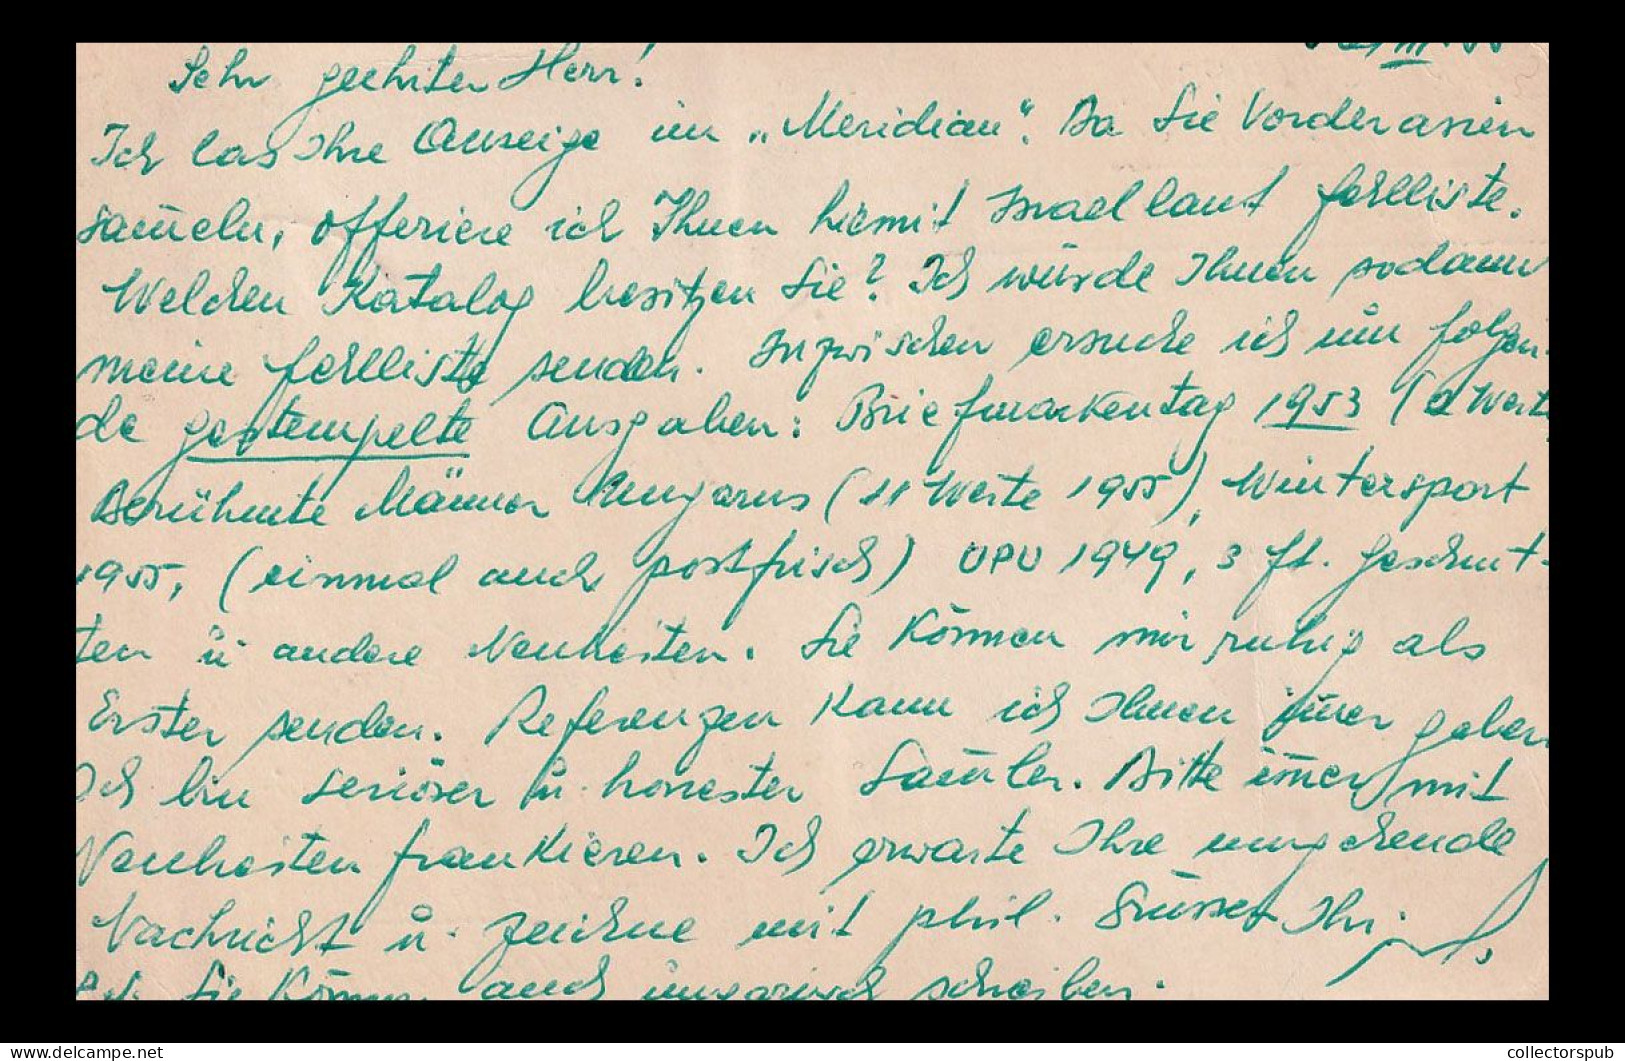 Sehr geehrter Herr!
Ich las Ihre Anzeige im „Meridian". Da Sie Vorderasien
sam̄eln, offeriere ich Ihnen hiemit Israel laut Fehlliste.
Welchen Katalog besitzen Sie? Ich würde Ihnen sodann
meine Fehlliste senden. Inzwischen ersuche ich um folgen-
de gestempelte Ausgaben: Briefmarkentag 1953 (2 Werte
Berühmte Männer Ungarns (11 Werte 1955), Wintersport
1955, (einmal auch postfrisch) UPU 1949, 3 ft. geschnit-
ten u. andere Neuheiten. Sie können mir ruhig als
Erster senden. Referenzen kann ich Ihnen im̄er geben
Ich bin seriöser u. honester Sam̄ler. Bitte im̄er mit
Neuheiten frankieren. Ich erwarte Ihre umgehende
Nachricht u. zeichne mit phil. Grüssen Ihr
P.S. Sie können auch ungarisch schreiben.
collectorspub